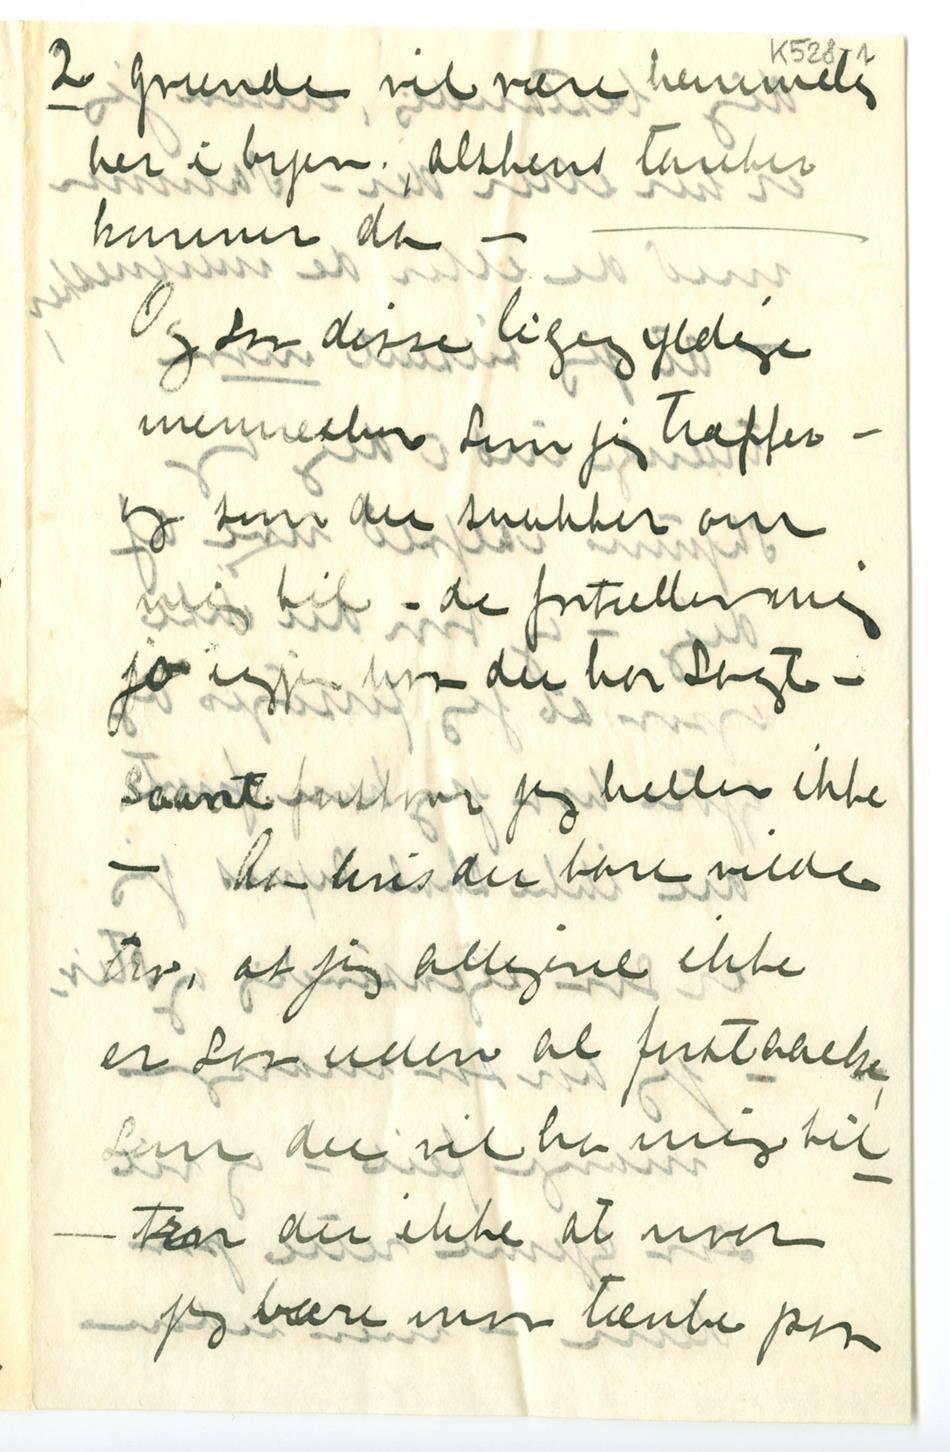 K528-1
2 grunde vil være hemmelig
her i byen., alskens tanker
kommer da —
Og saa disse ligegyldige
mennesker som jeg træffer —
og som du snakker om
mig til - de fortæller mig
jo igjen hva du har sagt —
Saant forstaar jeg heller ikke
— Aa hvis du bare vilde
tro, at jeg alligevel ikke
er saa uden al forstaaelse,
som du vil ha mig til —
— tror du ikke at naar
jeg bære maa tænke paa